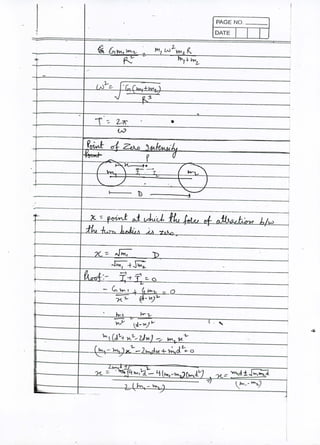 PAGE NO.
DATE
G m₁ m₂ / R² = m₁ ω² m₂ R / m₁ + m₂
ω² = √ G(m₁+m₂) / R³
T = 2π / ω
Point of Zero Intensity
P
m₁ m₂
D
x = point at which the force of attraction b/w
the two bodies is zero.
x = √m₁ D / √m₁ + √m₂
Proof:- I₁ + I₂ = 0
- G m₁ / x² + G m₂ / (d-x)² = 0
m₁ / x² = m₂ / (d-x)²
m₁ (d² + x² - 2dx) = m₂ x²
(m₁ - m₂) x² - 2m₁dx + m₁d² = 0
x = 4m₁²d² - 4(m₁-m₂)(m₁d²) / 2(m₁-m₂) ⇒ x = m₁d ± √m₁m₂ d / (m₁-m₂)